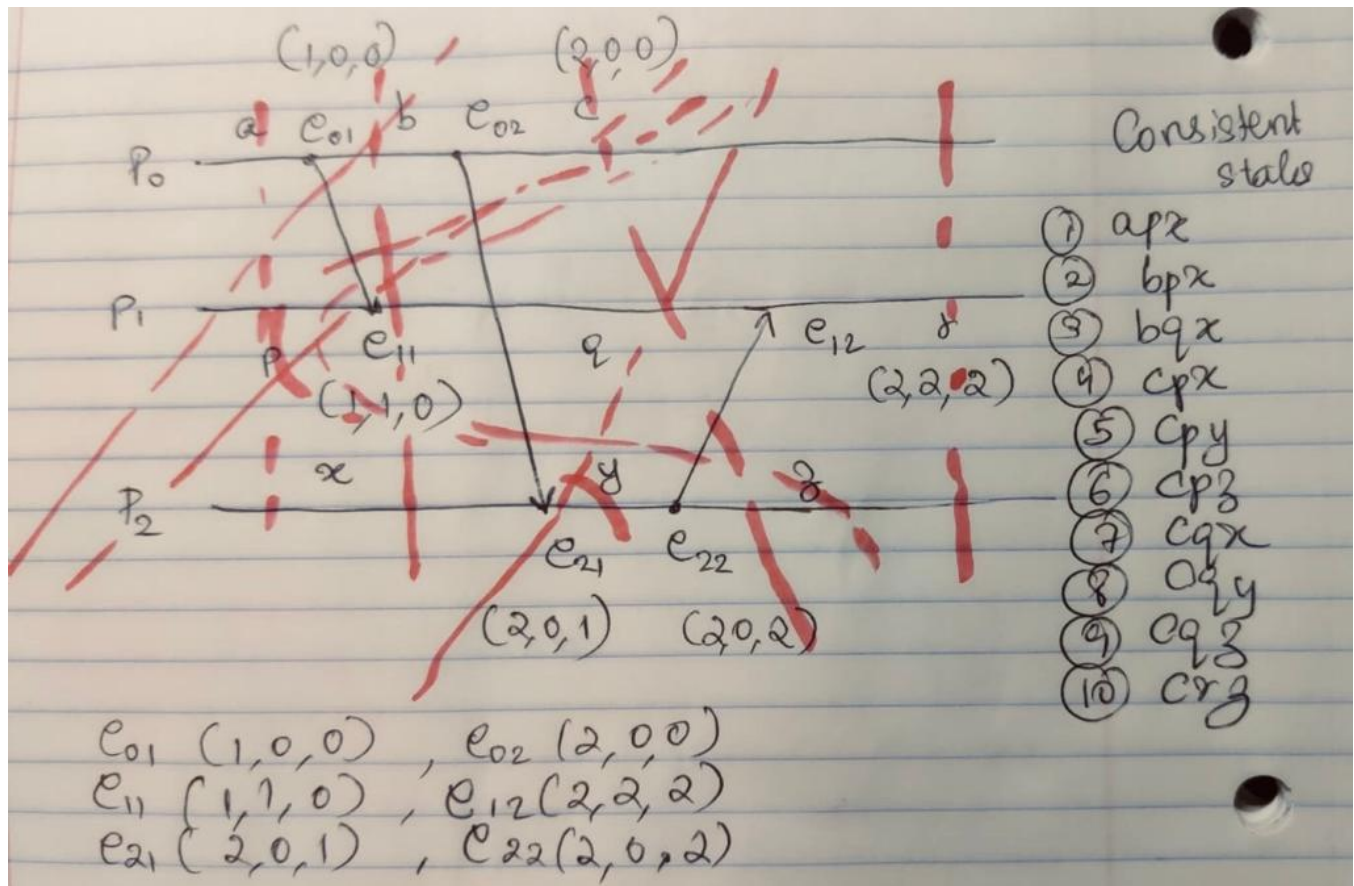 (1,0,0) (2,0,0)
a e01 b e02 c
P0
P1
p e11 q e12 r
(1,1,0) (2,2,2)
x y z
P2
e21 e22
(2,0,1) (2,0,2)
Consistent
states
① apx
② bpx
③ bqx
④ cpx
⑤ cpy
⑥ cpz
⑦ cqx
⑧ cqy
⑨ cqz
⑩ crz
e01 (1,0,0) , e02 (2,0,0)
e11 (1,1,0) , e12 (2,2,2)
e21 (2,0,1) , e22 (2,0,2)